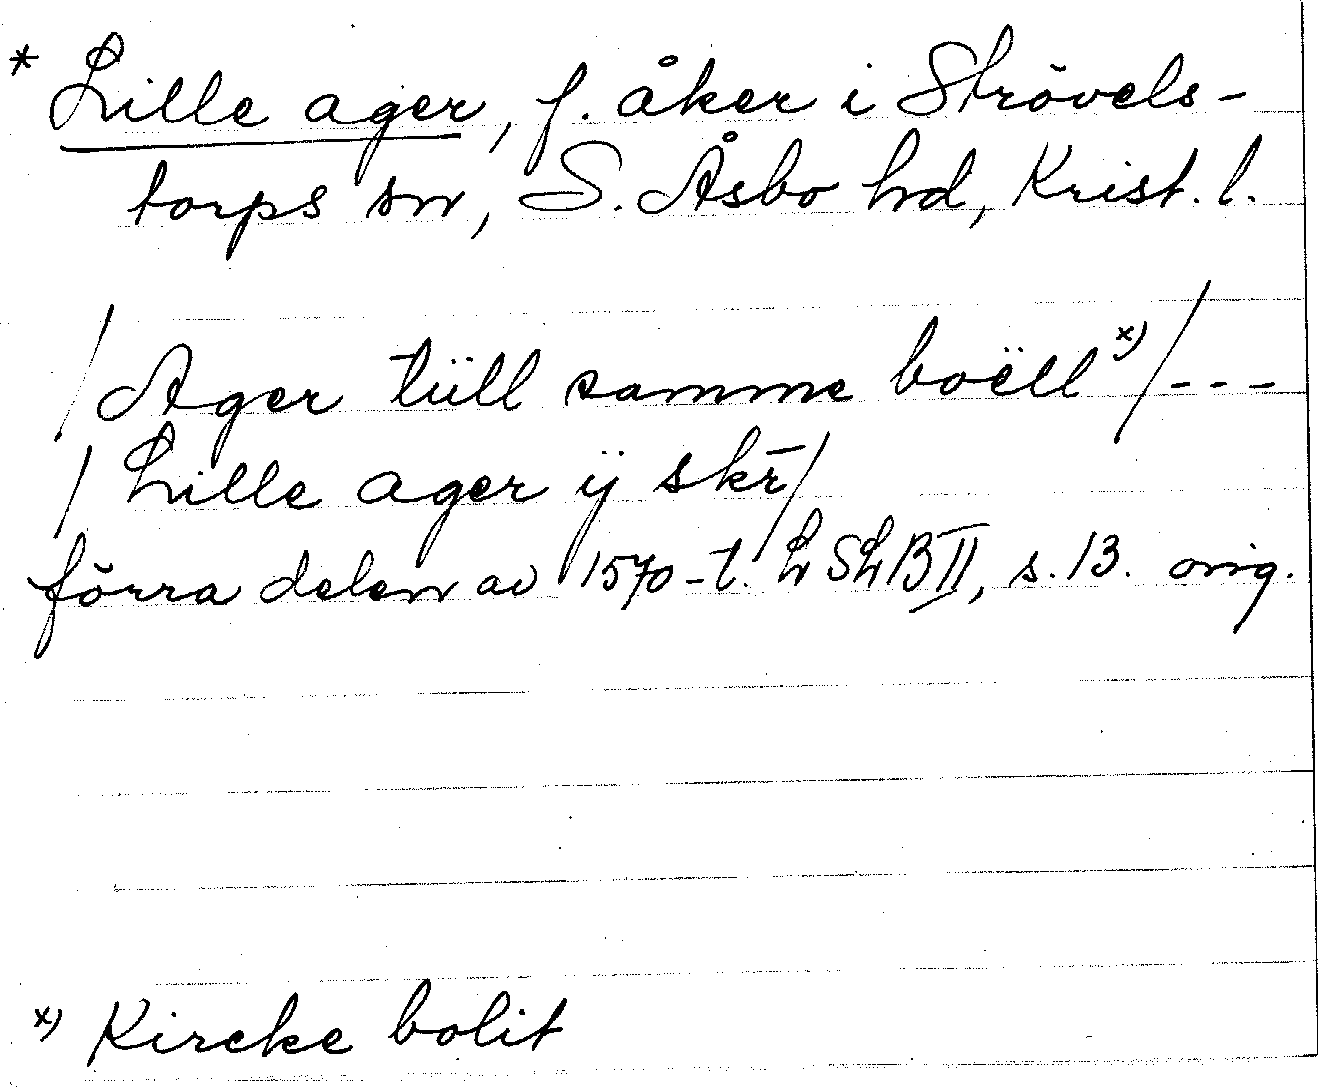 * Lille ager, f. åker i Strövels-
torps sn, S. Åsbo hd, Krist. l.
/Ager tüll samme boëll x)/---
/Lille ager ÿ skr̄/
förra delen av 1570-t. LSLB II, s. 13. orig.
x) Kircke bolit